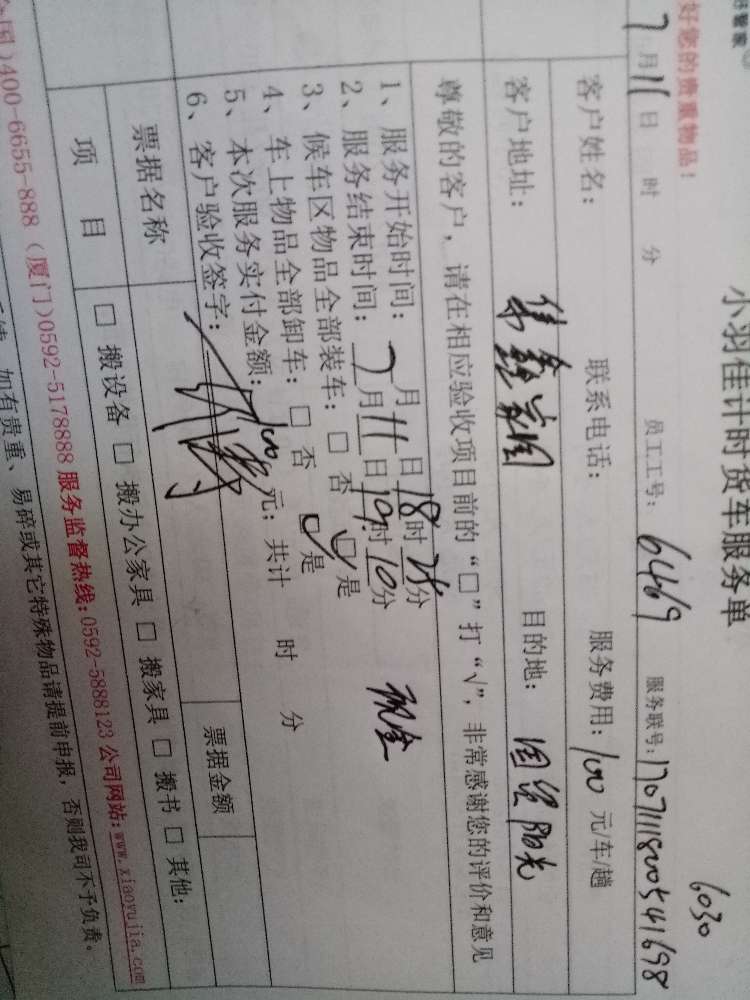 小羽佳计时货车服务单
6030
好您的贵重物品！
7月11日 时 分 员工工号：6469 服务联号：
客户姓名： 联系电话： 服务费用：100 元/车/趟
客户地址： 目的地：国贸阳光
尊敬的客户，请在相应验收项目前的“□”打“√”，非常感谢您的评价和意见
1、服务开始时间： 月 日 18时 分
2、服务结束时间：7月11日19时10分 现金
3、候车区物品全部装车：□ 否 □ 是
4、车上物品全部卸车：□ 否 □ 是
5、本次服务实付金额：100 元；共计 时 分
6、客户验收签字：
票据名称 票据金额
项 目 □ 搬设备 □ 搬办公家具 □ 搬家具 □ 搬书 □ 其他：
国)400-6655-888（厦门)0592-5178888 服务监督热线：0592-5888123 公司网站：www.xiaoyujia.com
如有贵重、易碎或其它特殊物品请提前申报，否则我司不予负责。